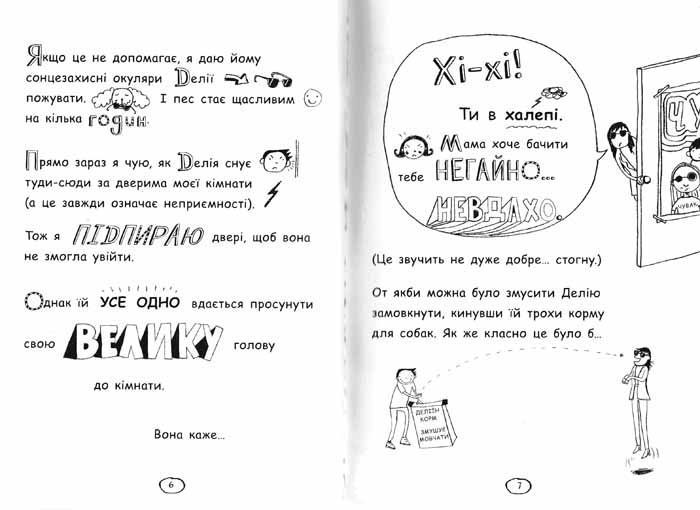 Якщо це не допомагає, я даю йому
сонцезахисні окуляри Делії
пожувати. І пес стає щасливим
на кілька годин.
Прямо зараз я чую, як Делія снує
туди-сюди за дверима моєї кімнати
(а це завжди означає неприємності).
Тож я ПІДПИРАЮ двері, щоб вона
не змогла увійти.
Однак їй УСЕ ОДНО вдається просунути
свою ВЕЛИКУ голову
до кімнати.
Вона каже...
6
Хі-хі!
Ти в халепі.
Мама хоче бачити
тебе НЕГАЙНО...
НЕВДАХО.
ЧУ
ЧУВАК
(Це звучить не дуже добре... стогну.)
От якби можна було змусити Делію
замовкнути, кинувши їй трохи корму
для собак. Як же класно це було б...
ДЕЛІЇН
КОРМ
ЗМУШУЄ
МОВЧАТИ
7